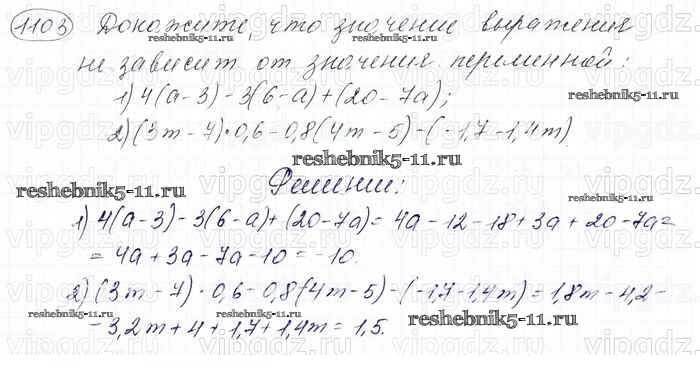 1103 Докажите что значение выражения
не зависит от значения переменной:
1) 4(a-3)-3(6-a)+(20-7a);
2) (3m-7)·0,6-0,8(4m-5)-(-1,7-1,4m)
Решение:
1) 4(a-3)-3(6-a)+(20-7a)= 4a-12-18+3a+20-7a=
= 4a+3a-7a-10=-10.
2) (3m-7)·0,6-0,8(4m-5)-(-1,7-1,4m)=1,8m-4,2-
-3,2m+4+1,7+1,4m=1,5.
reshebnik5-11.ru
reshebnik5-11.ru
reshebnik5-11.ru
reshebnik5-11.ru
reshebnik5-11.ru
reshebnik5-11.ru
reshebnik5-11.ru